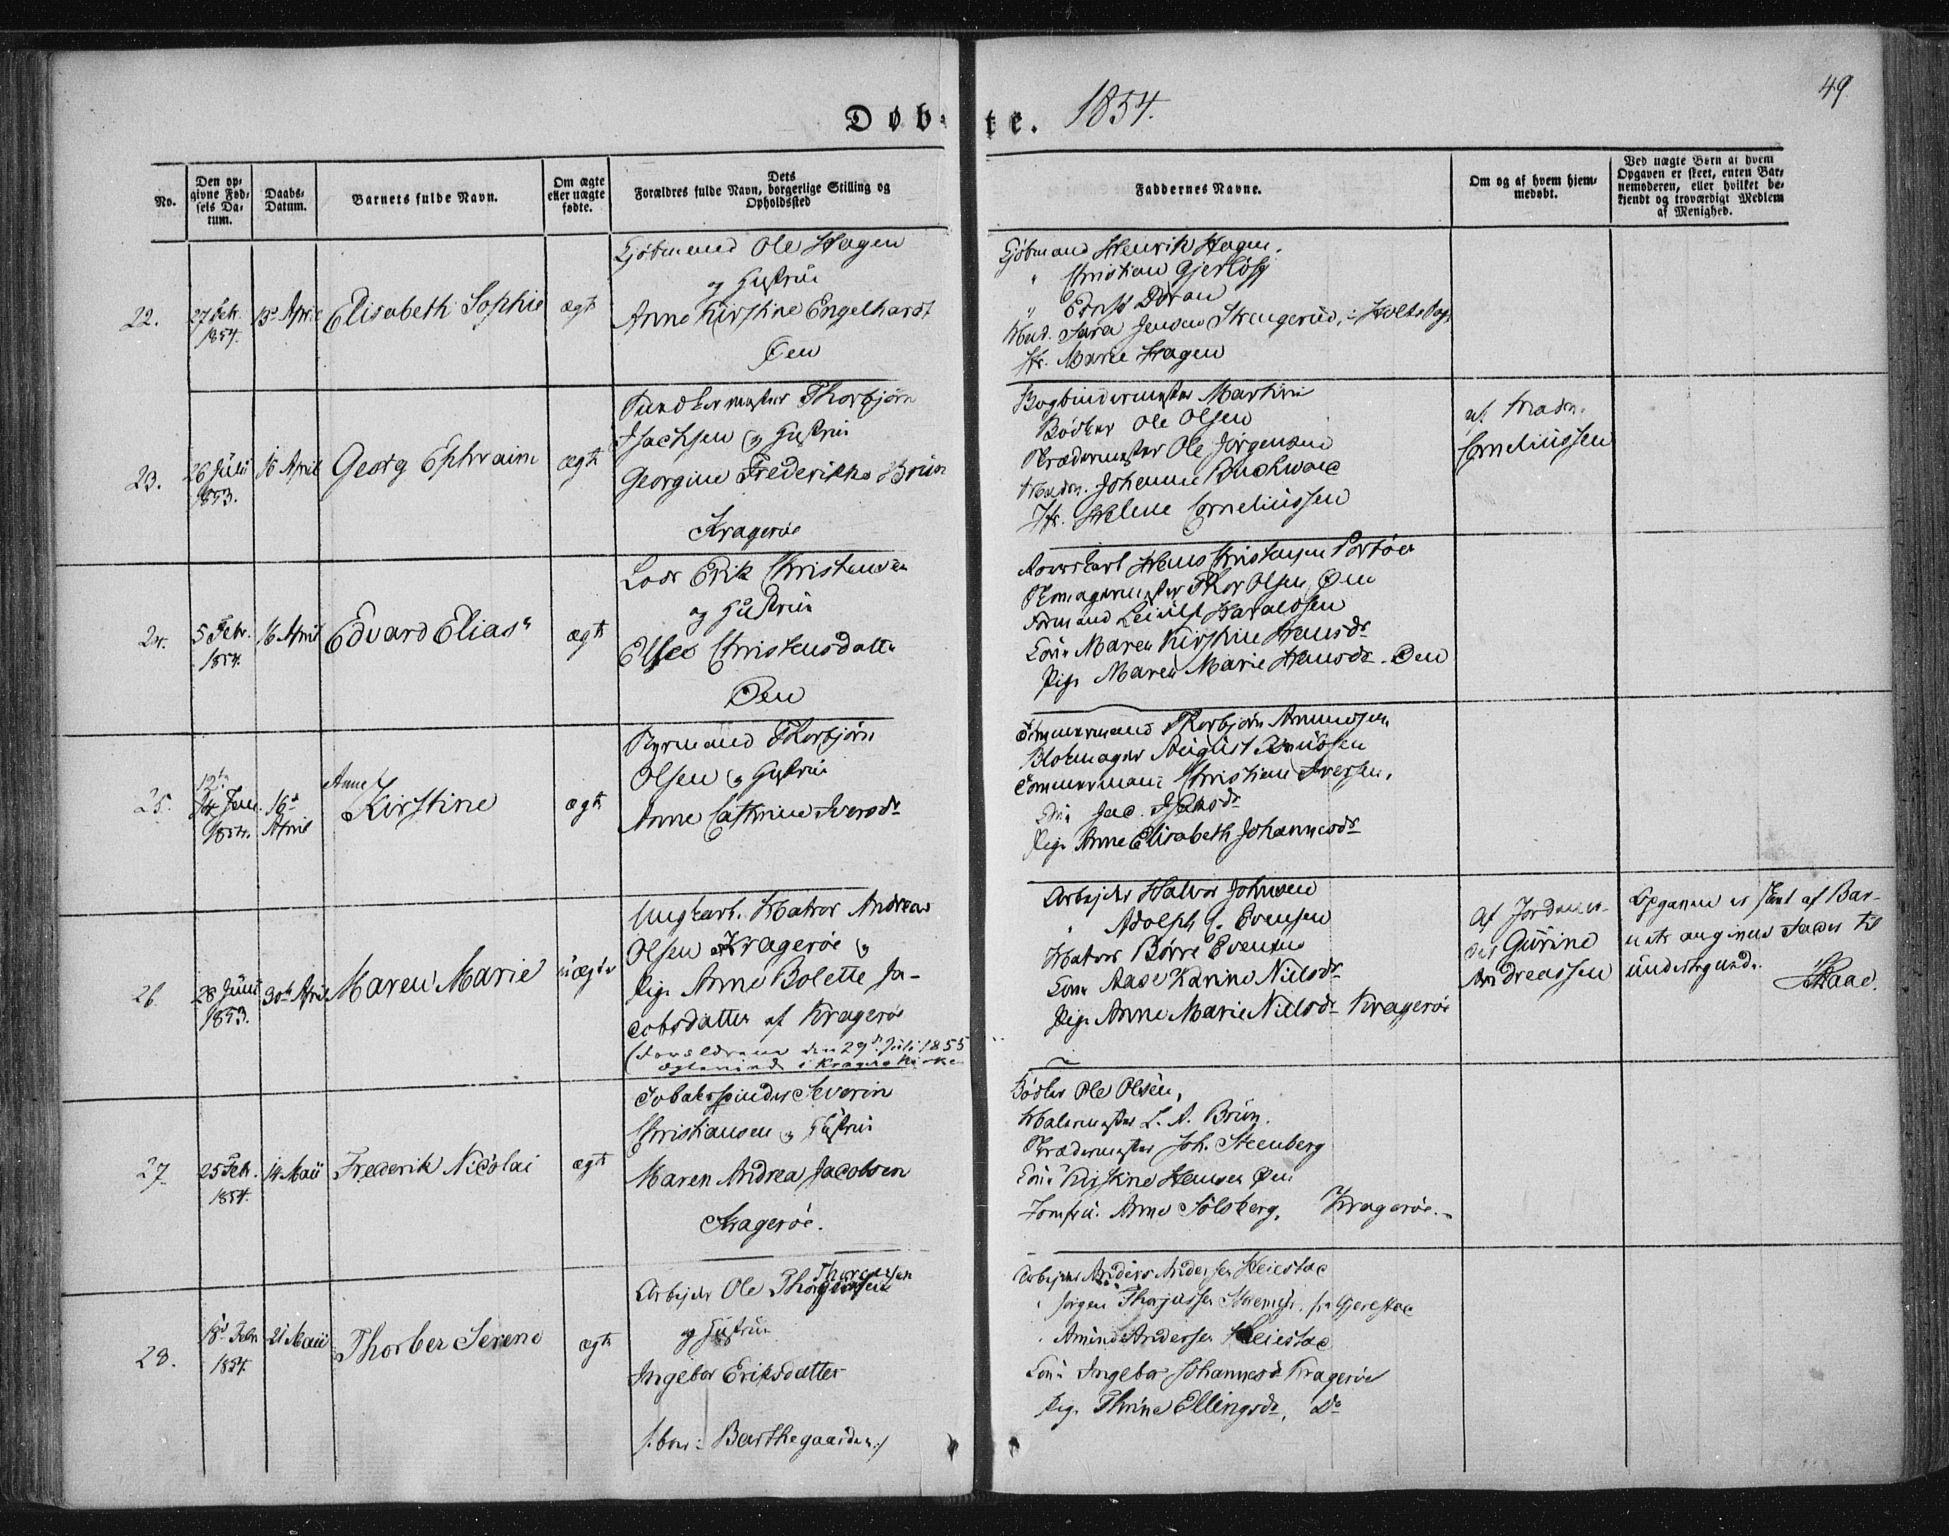 49
Døb-te. 1854.
No.
Den op-
givne Fød-
sels Da-
tum.
Daabs-
Datum.
Barnets fulde Navn.
Om ægte
eller uægte
fødte.
Dets
Forældres fulde Navn, borgerlige Stilling og
Opholdssted
Faddernes Navne.
Om og af hvem hjem-
medøbt.
Ved uægte Børn af hvem
Opgaven er skeet, enten Bar-
nemoderen, eller hvilket be-
kjendt og troværdigt Medlem
af Menighed.
22.
27 Feb.
1854.
13de April
Elisabeth Sophie
ægte
Kjøbmand Ole Hagen
og Hustrue
Anne Kirstine Engelhardt
Øen
Kjøbmand Henrik Hagen.
" Christian Gjerløff
" Ernst Døran
Mad. Sara Jensen
Jfr. Marie Hagen
23.
26 Juli
1853.
16 April
Georg Ephraim
ægte
Thorbjørn
Isachsen og Hustrue
Georgine Frederikke Brun
Kragerøe
Bogbindermester Martini
Bødker Ole Olsen
Skrædermester Ole Jørgensen
Madm. Johanne Buchwald
Jfr. Helene Corneliussen
af Madm.
Corneliussen
24.
5 Febr.
1854.
16 April
Edvard Elias
ægte
Lods Erik Christensen
og Hustrue
Else Christensdatter
Øen
Hans Christensen Portøer
Skomagermester Thor Olsen, Øen
Formand Leiulf Haraldsen
Kone Maren Kirstine Hansdr
Pige Maren Marie Hansdr. Øen
25.
12te
Jan.
1854.
16de
April
Anne
Kirstine
ægte
Styrmand Thorbjørn
Olsen og Hustrue
Anne Cathrine Iversdr
Tømmermand Thorbjørn Amundsen
Blokmager August Knudsen
Tømmermand Christian Iversen.
Kone Jac. Isaksdr
Pige Anne Elisabeth Johannesdr
26.
28 Juni
1853.
30te April
Maren Marie
uægte
Ungkarl. Matros Andreas
Olsen Kragerøe og
Pige Anne Bolette Ja-
cobsdatter af Kragerøe
(Forældrene den 29de Juli 1855
ægteviede i Kragerø Kirke
Arbejder Halvor Johnsen
" Adolph J. Evensen
Matros Børre Evensen
Kone Aase Karine Nielsdr
Pige Anne Marie Nielsdr Kragerøe
Af Jordemo-
der Gurine
Andreassen
Opgaven er skeet af Bar-
nets angivne Fader til
undertegnede.
27.
25 Feb.
1854.
14 Maii
Frederik Nicolai
ægte
Tobaksspinder Severin
Christiansen og Hustrue
Maren Andrea Jacobsen
Kragerøe.
Bødker Ole Olsen,
Malermester L. A. Brun.
Skrædermester Joh. Steenberg
Kone Kirstine Hansen Øen
Jomfru. Anne Solberg, Kragerøe.
28.
18de Febr
1854.
21 Maii
Thorber Serene
ægte
Thoresen
Arbejder Ole
og Hustrue
Ingebor Eriksdatter
/: boe: Barthegaarden:/
Arbejder Anders Andersen Heiestad
" Jørgen Thorjussen
" Amund Andersen Heiestad
Kone Ingebor Johannesdr Kragerøe
Pige Thrine Ellingsdr, Do